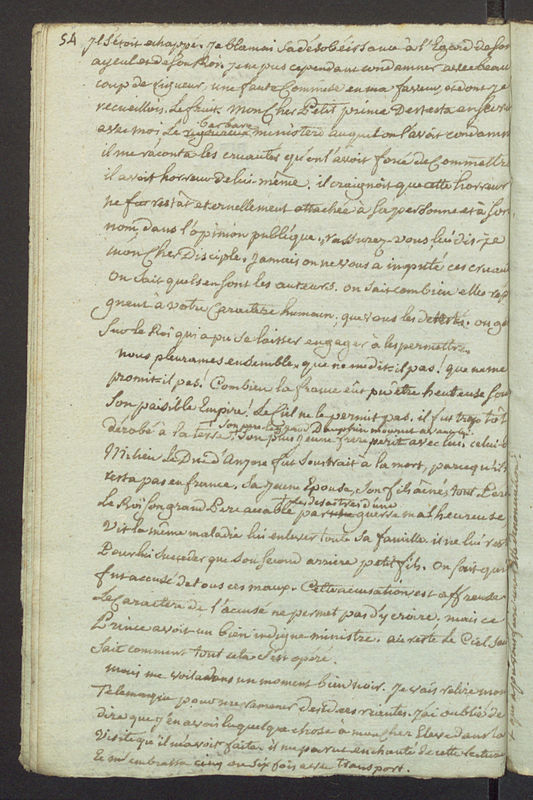 54 il s'étoit échappé. Je blamai sa désobéissance à l'Egard de son
ayeul et de son Roi. Je ne pus cependant condamner avec beau
coup de rigueur, une faute Commise en ma faveur, et dont je
recueillois le fruit. Mon Cher Petit prince detesta
avec moi Le barbare ministere auquel on l'avoit condamné
il me raconta les cruautés qu'on l'avoit forcé de Commettre
il avoit horreur de lui-même, il craignoit que cette horreur
ne fut restât eternellement attachée à sa personne et à son
nom, dans l'opinion publique. rassurez-vous lui dis-je
mon Cher Disciple. Jamais on ne vous a imputé ces cruau
On sait quels en sont les auteurs. on sait combien elles rép
gnent à votre Caractere humain; que vous les detestez. on gé
Sur le Roi qui a pu se laisser engager à les permettre.
nous pleurames ensemble, que ne me dit-il pas! que ne me
promit-il pas! Combien la france eût pu être heureuse sous
Son paisible Empire! Le Ciel ne le permit pas. il fut trop tôt
derobé à la terre. Son pere le grand Dauphin mourut avant lui
Son plus jeune frere périt avec lui. celui d
Milieu Le Duc d'Anjou fut soustrait à la mort, parce qu'il
resta pas en france. Sa jeune Epouse, Son fils aîné, tout Perit
Le Roi son grand Pere accablé par les désastres d'une guerre malheureuse
Vit la même maladie lui enlever toute sa famille. il ne lui rest
Pour lui succeder que son second arriere petit fils. On sait qui
fut accusé de tous ces maux. Cette accusation est affreuse
Le Caractere de l'accusé ne permet pas d'y croire. mais ce
Prince avoit un bien indigne ministre. au reste le Ciel seul
Sait comment tout cela s'est opéré.
mais me voila dans un moment bien noir. Je vais relire mon
Télémaque pour me ramener des idées riantes. J'ai oublié de
dire que j'en avois lu quelque chose à mon cher Eleve dans la
Visite qu'il m'avoit faite. il me parut enchanté de cette lecture
Et m'embrassa cinq ou six fois avec transport.